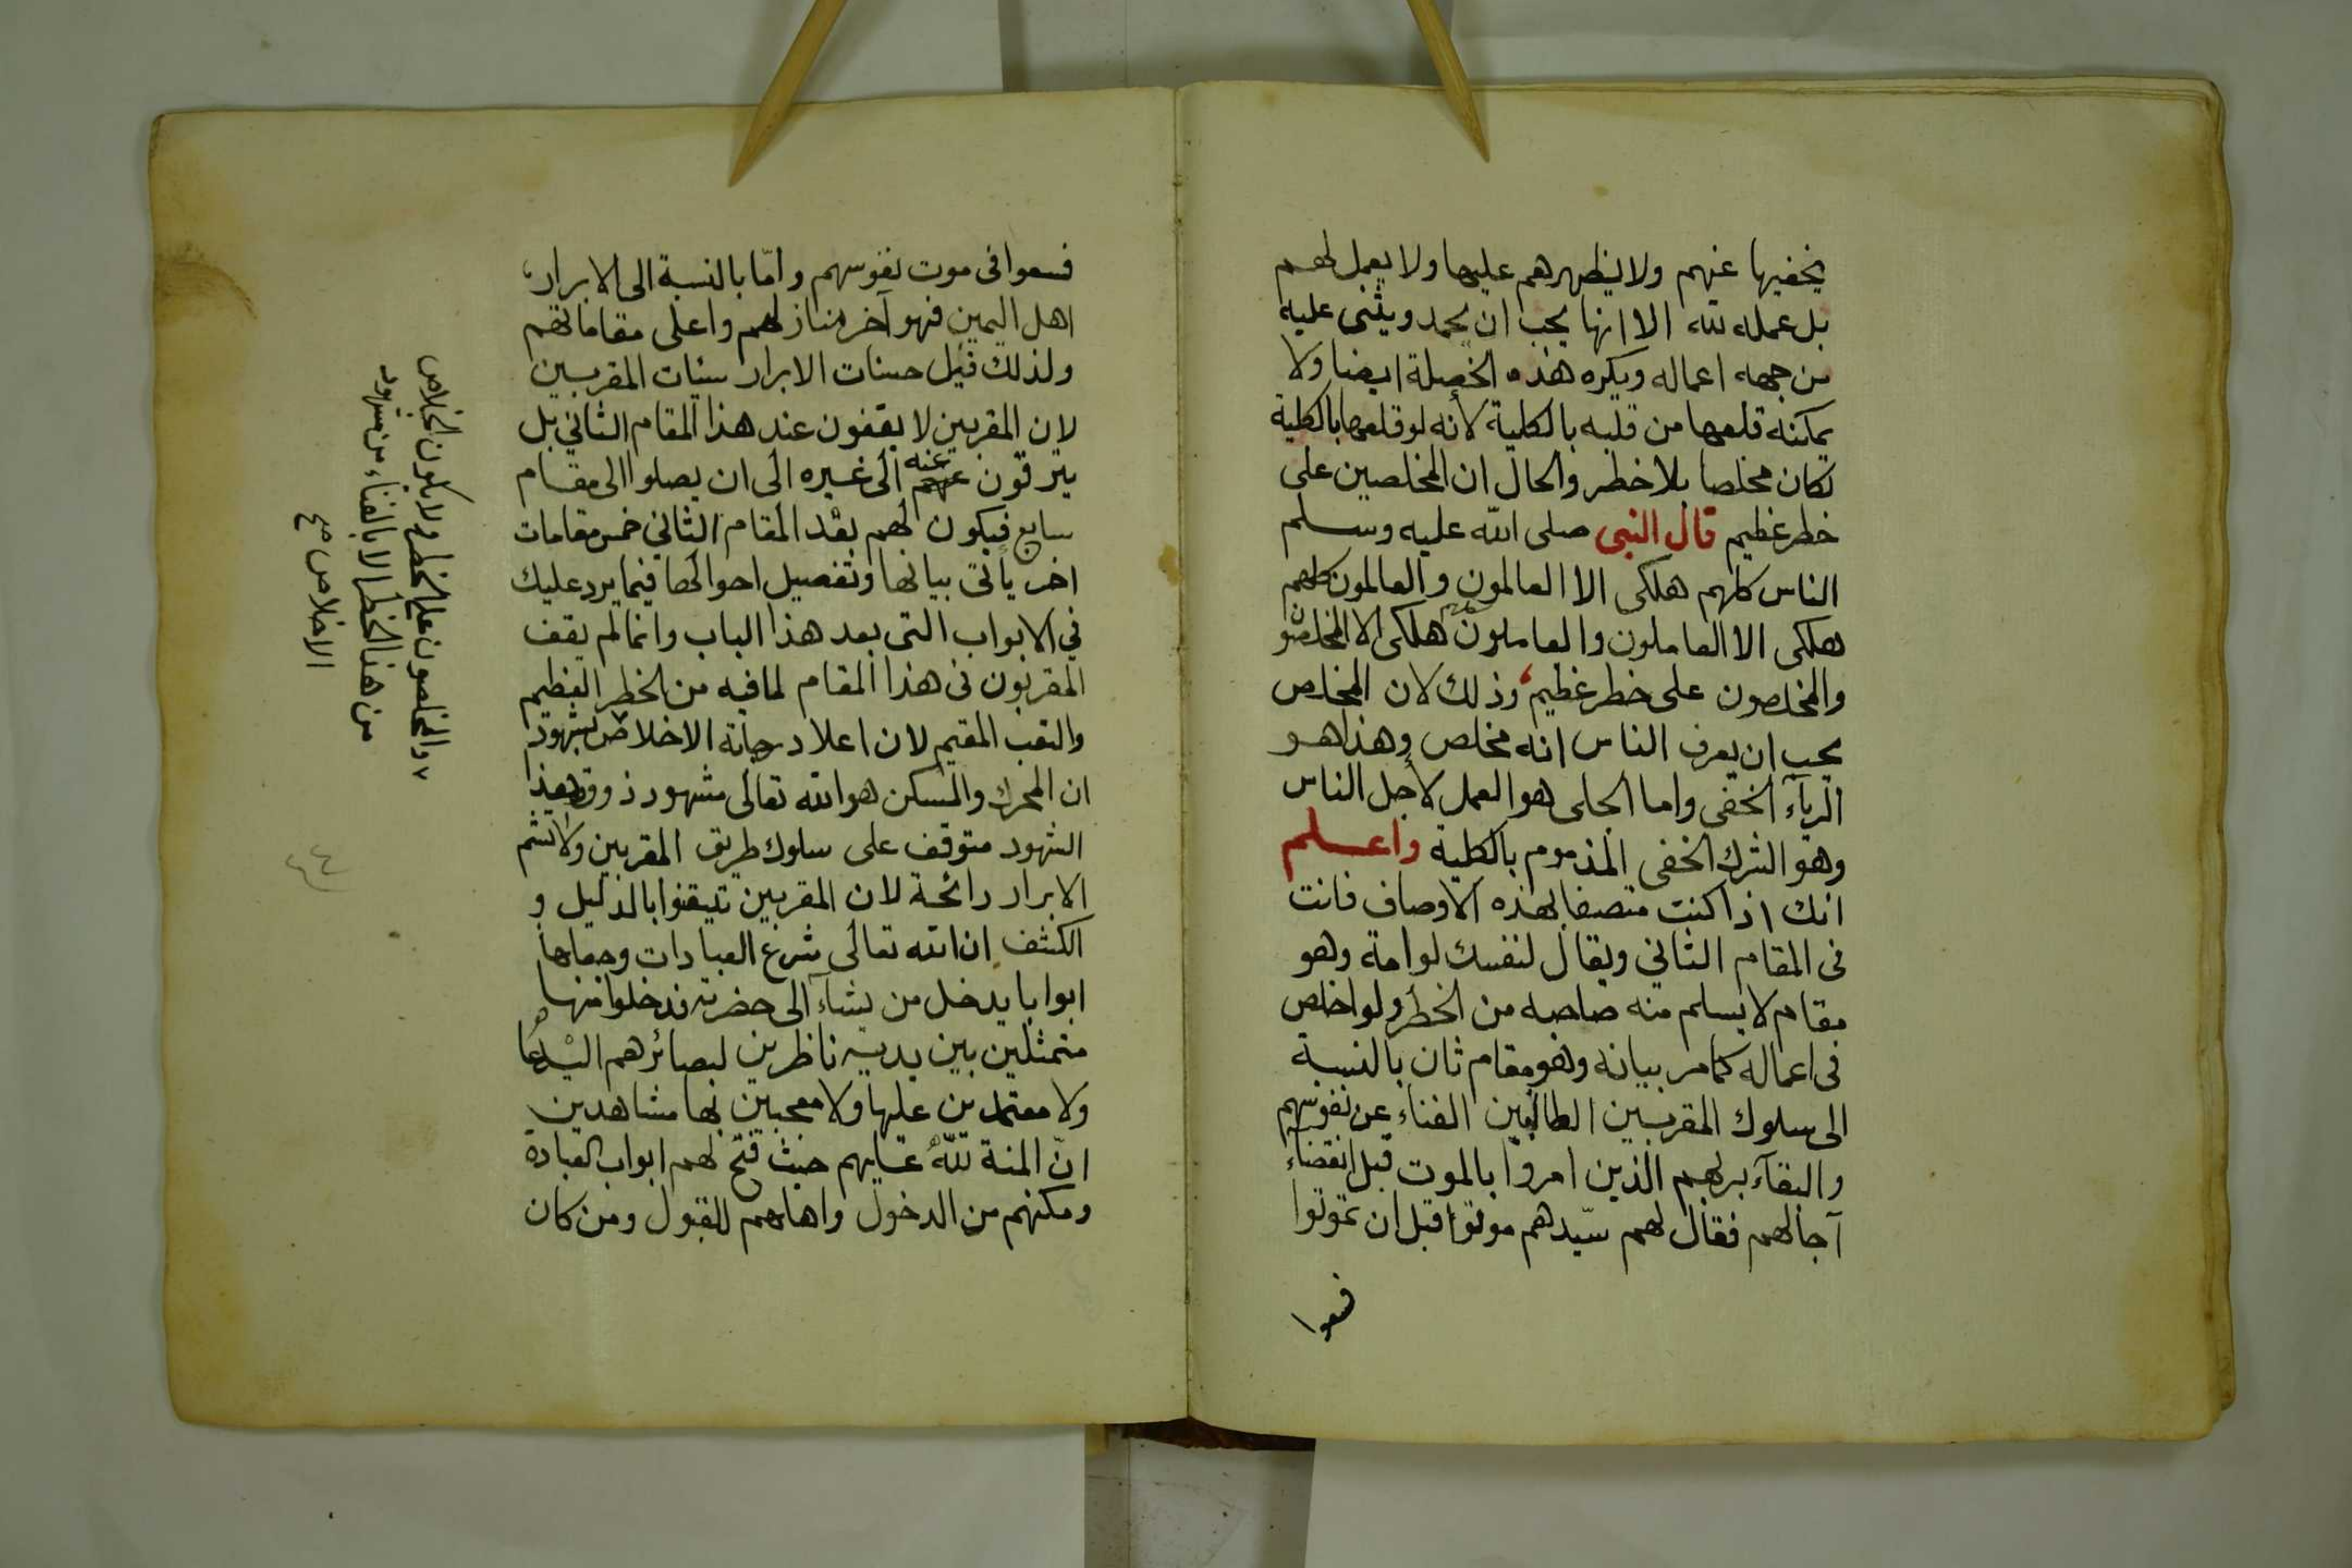 يخفيها عنهم ولا يظهرهم عليها ولا يعمل لهم
بل عمله لله الا انها يحب ان يحمد ويثنى عليه
من جهه اعماله ويكره هذه الخصلة ايضا ولا
يمكنه قلعها من قلبه بالكلية لأنه لو قلعها بالكلية
لكان مخلصا بلا خطر والحال ان المخلصين على
خطر عظيم قال النبى صلى الله عليه وسلم
الناس كلهم هلكى الا العالمون والعالمون كلهم
هلكى الا العاملون والعاملون كلهم هلكى الا المخلصون
والمخلصون على خطر عظيم وذلك لان المخلص
يحب ان يعرف الناس انه مخلص وهذا هو
الرياء الخفى واما الجلى هو العمل لأجل الناس
وهو الشرك الخفى المذموم بالكلية واعلم
انك اذا كنت متصفا بهذه الاوصاف فانت
فى المقام الثاني ويقال لنفسك لوامة وهو
مقام لا يسلم منه صاحبه من الخطر ولو اخلص
فى اعماله كما مر بيانه وهو مقام ثان بالنسبة
الى سلوك المقربين الطالبين الفناء عن نفوسهم
والبقآء بربهم الذين امروا بالموت قبل انقضاء
آجالهم فقال لهم سيّدهم موتوا قبل ان تموتوا
فسعوا
فسعوا فى موت نفوسهم وامّا بالنسبة الى الابرار
اهل اليمين فهو آخر منازلهم واعلى مقاماتهم
ولذلك قيل حسنات الابرار سيئات المقربين
لان المقربين لا يقفون عند هذا المقام الثاني بل
يترقون عنه الى غيره الى ان يصلوا الى مقام
سابع فيكون لهم بعد المقام الثاني خمس مقامات
اخر يأتى بيانها وتفصيل احوالها فيما يرد عليك
في الابواب التى بعد هذا الباب وانما لم يقف
المقربون فى هذا المقام لما فيه من الخطر العظيم
والتعب المقيم لان اعلا درجاته الاخلاص بشهود
ان المحرك والمسكن هو الله تعالى شهود ذوق وهذا
الشهود متوقف على سلوك طريق المقربين ولا تشم
الابرار رائحة لان المقربين تيقنوا بالدليل و
الكشف ان الله تعالى شرع العبادات وجعلها
ابوابا يدخل من يشاء الى حضرته فدخلوا منها
متمثلين بين يديه ناظرين ببصائرهم اليه لا
ولا معتمدين عليها ولا معجبين بها مشاهدين
انّ المنة لله عليهم حيث فتح لهم ابواب العبادة
ومكنهم من الدخول واهلهم للقبول ومن كان
والمخلصون على الخطر ولا يكون الخلاص
من هذا الخطر الا بالفناء من شهود
الاخلاص صح